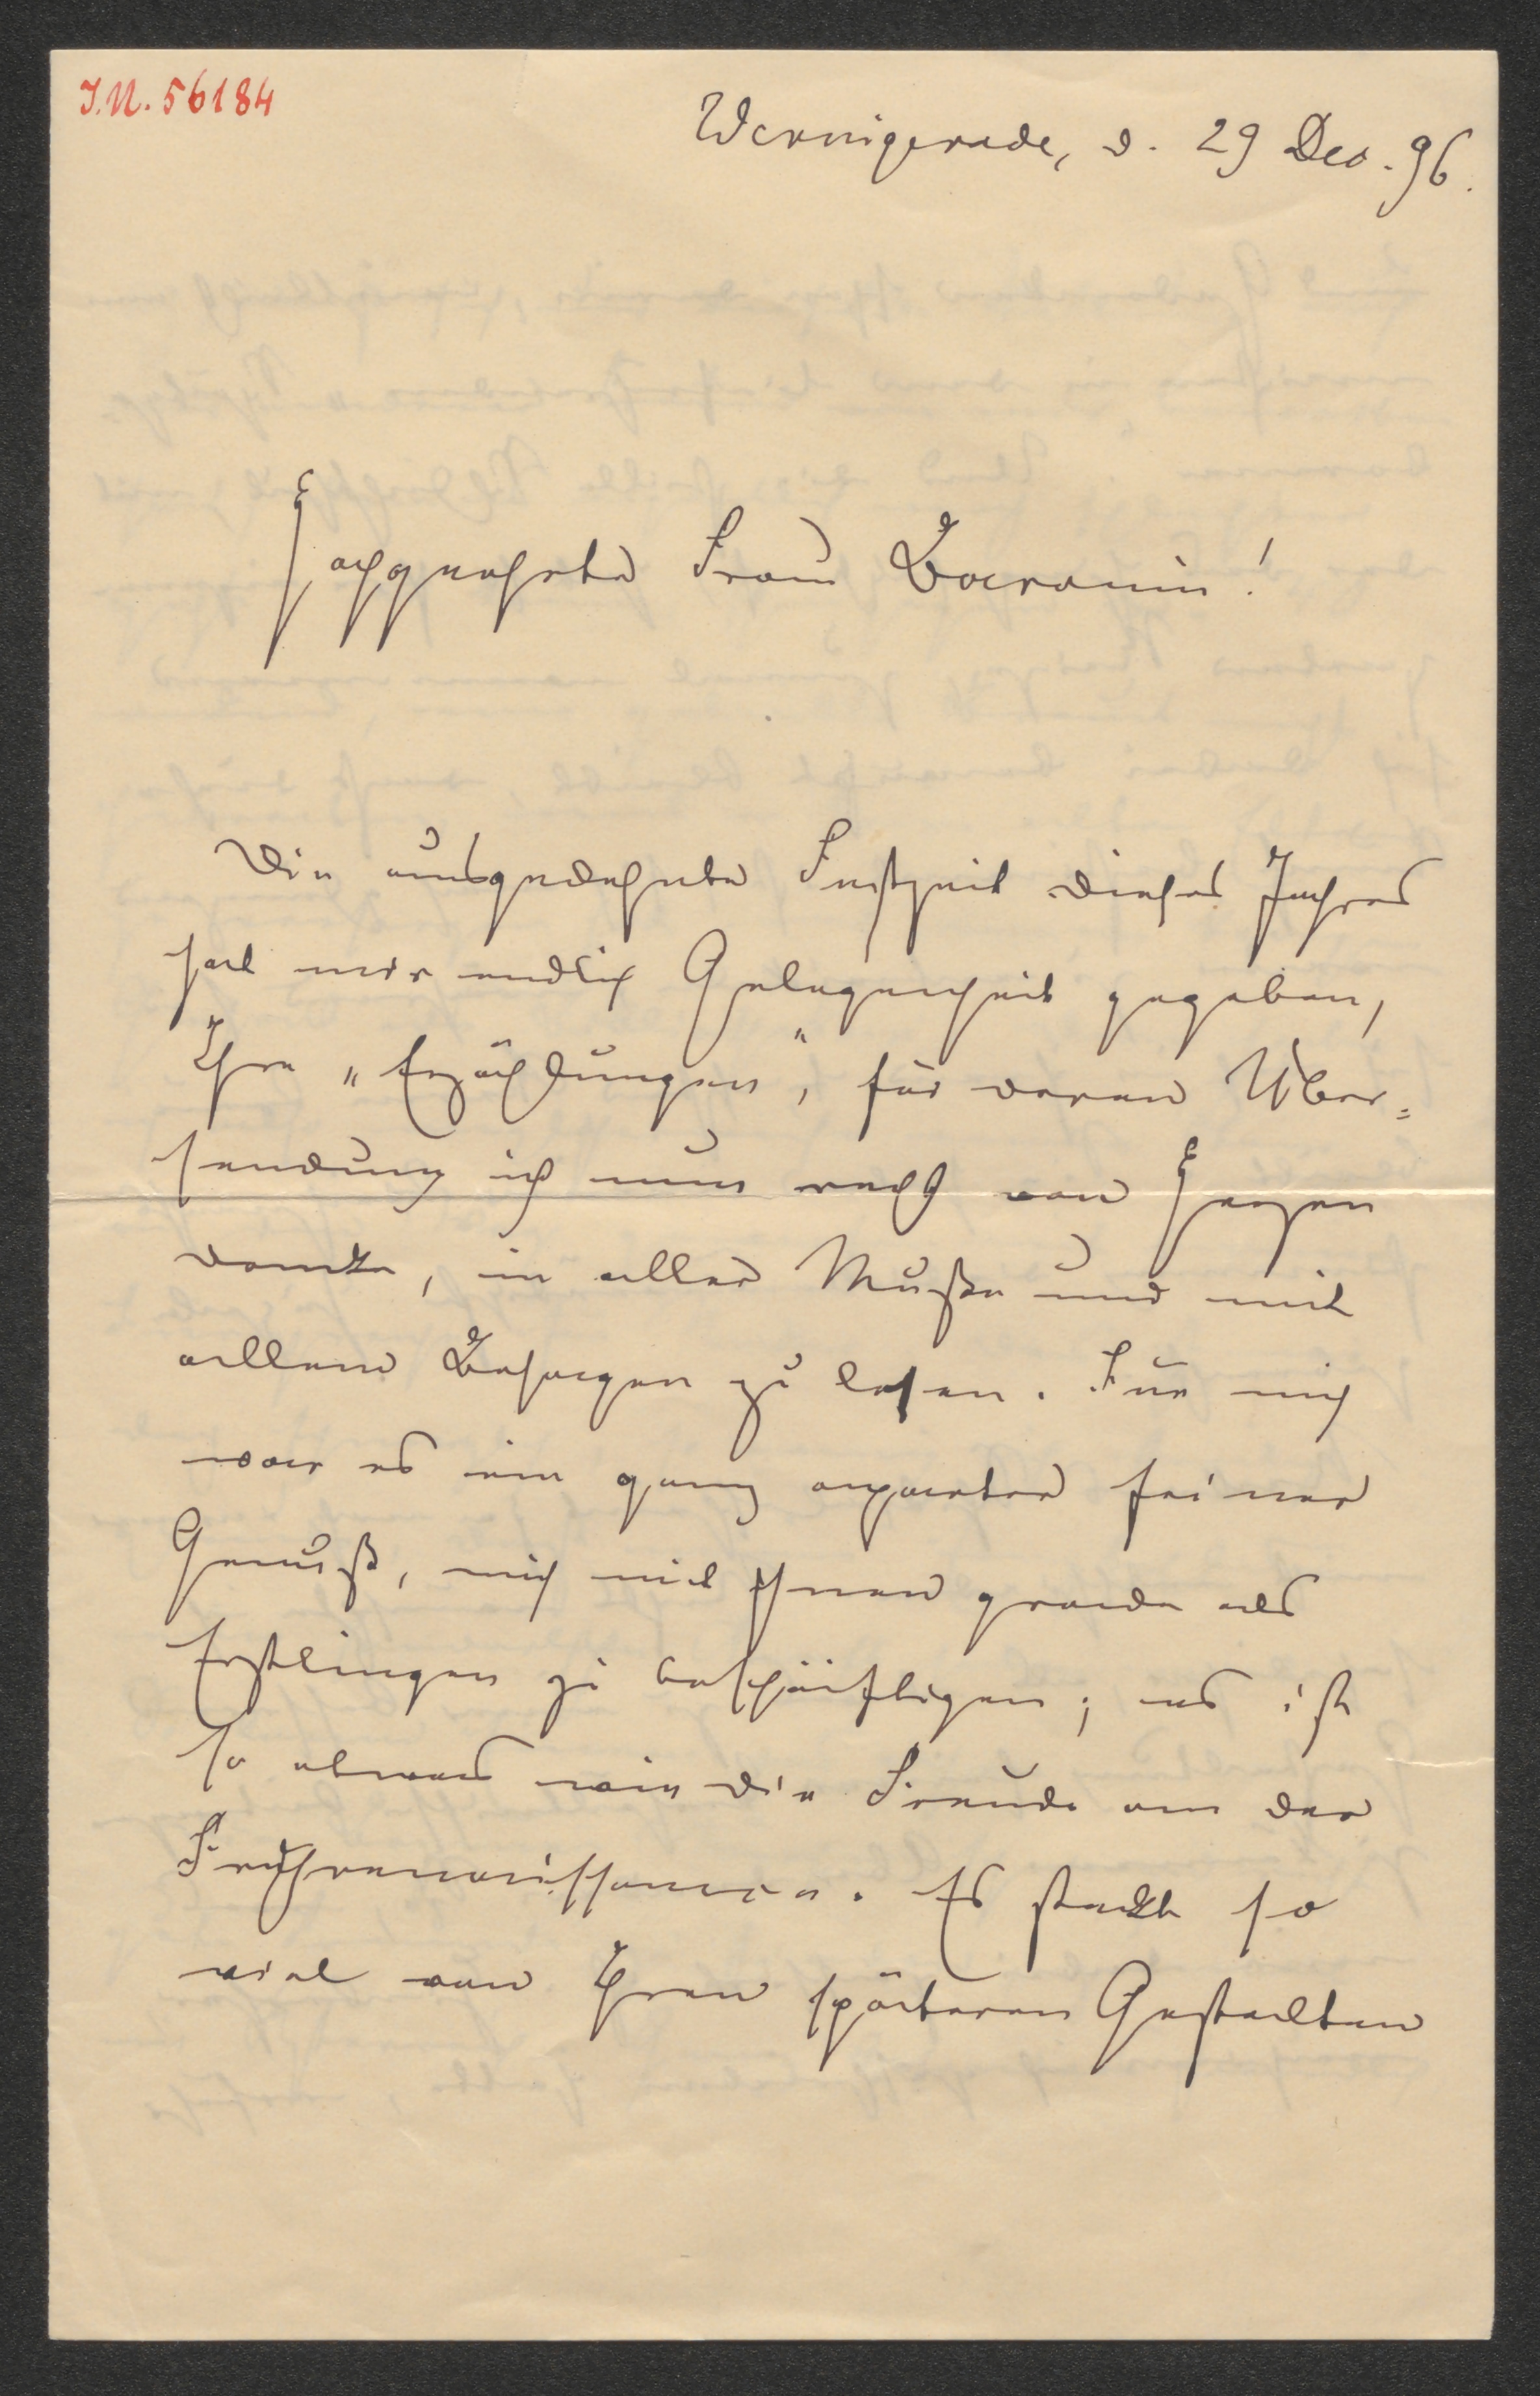 I.N. 56184
Wernigerode, d. 29 Dec. 96.
Hochgeehrte Frau Baronin!
Die ausgedehnte Festzeit dieses Jahres
hat mir endlich Gelegenheit gegeben,
Ihre „Erzählungen", für deren Über=
sendung ich nun recht von Herzen
danke, in aller Muße und mit
allem Behagen zu lesen. Für mich
war es ein ganz aparter feiner
Genuß, mich mit Ihnen grade als
Erstlingen zu beschäftigen; es ist
so etwas wie die Freude an der
Frührenaissance. Es steckt so
viel von Ihren späteren Gestalten